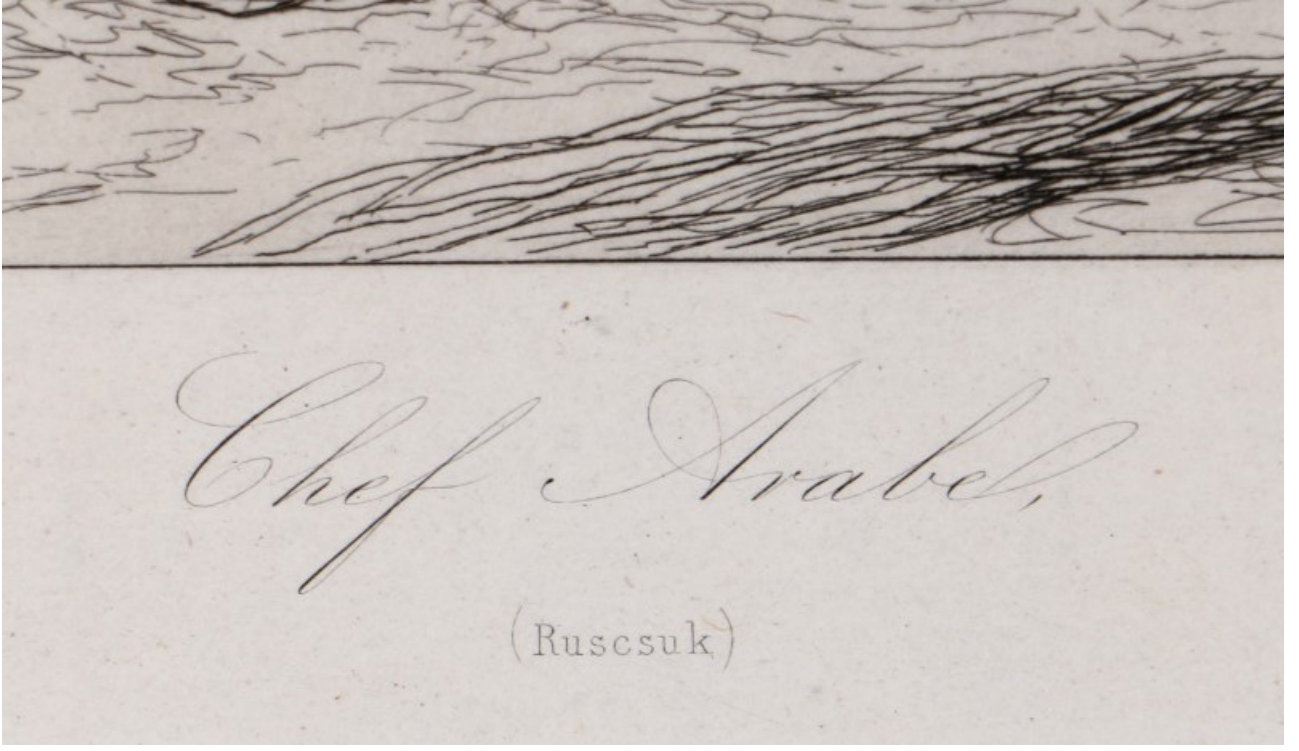 Chef Arabe,
(Ruscsuk)